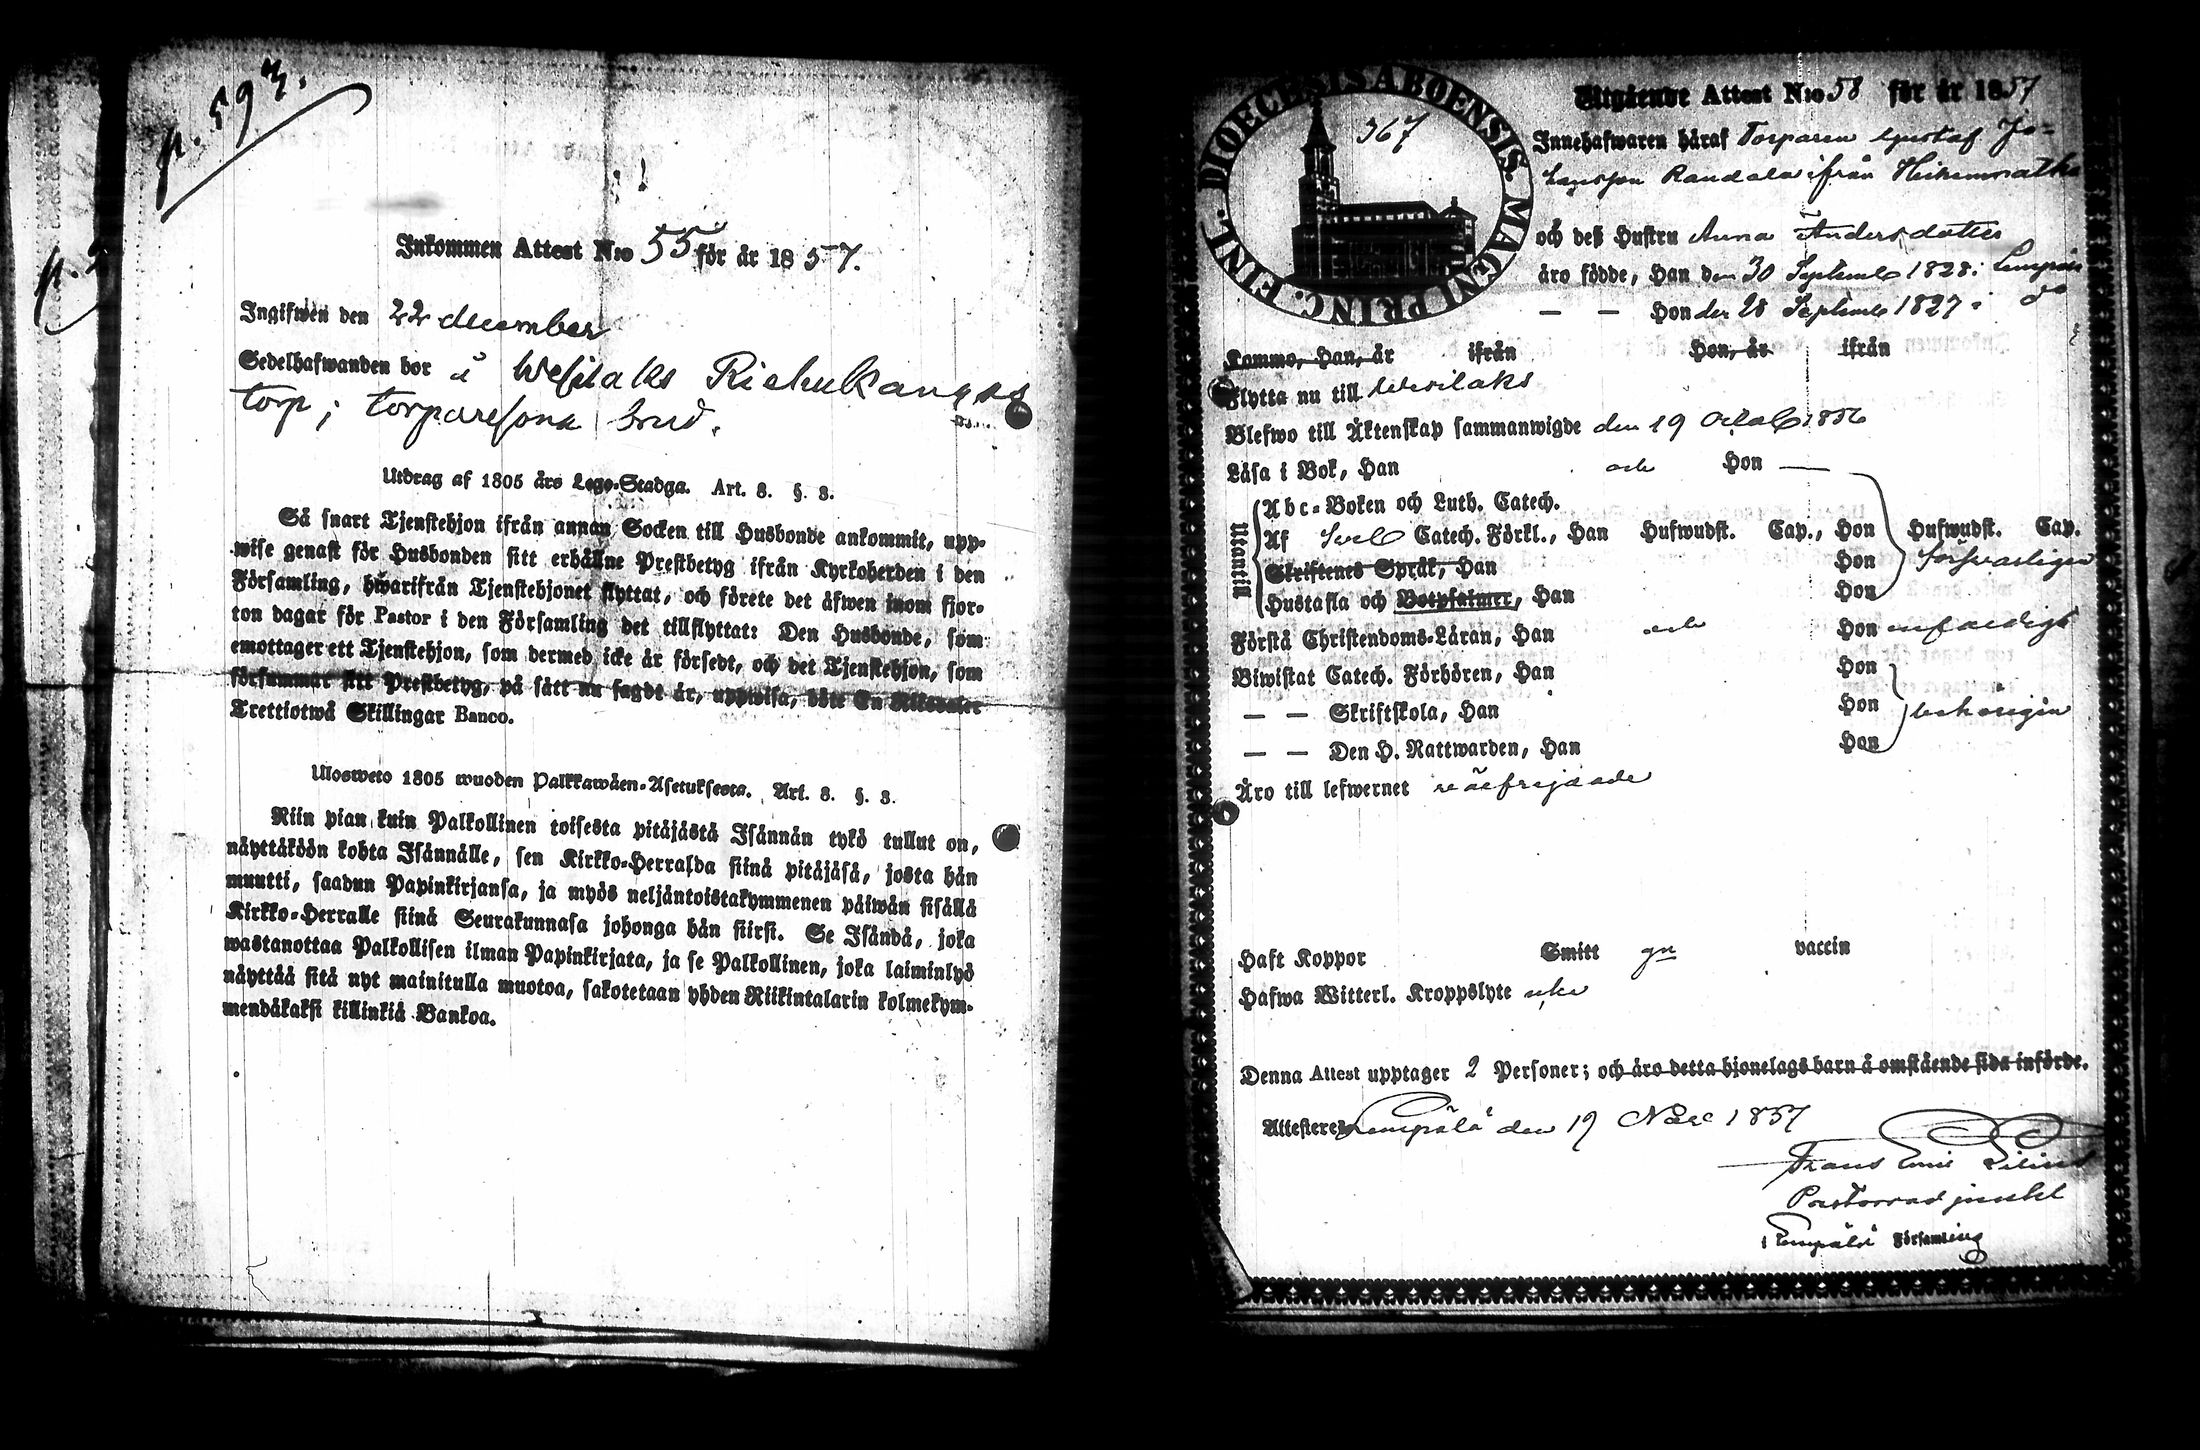 p. 593.
Inkommen Attest N:o 55 för år 1857.
Ingifwen den 22 december
Sedelhafwanden bor å Wesilaks
torp; torparesona brud.
Utdrag af 1805 års Lego-Stadga. Art. 8. §. 3.
Så snart Tjenstehjon ifrån annan Socken till Husbonde ankommit, upp-
wise genast för Husbonden sitt erhållne Prestbetyg ifrån Kyrkoherden i den
Församling, hwarifrån Tjenstehjonet flyttat, och förete det äfwen inom fjor-
ton dagar för Pastor i den Församling det tillflyttat: Den Husbonde, som
emottager ett Tjenstehjon, som dermed icke är försedt, och det Tjenstehjon, som
försummar sitt Prestbetyg, på sätt nu sagdt är, uppwisa, böte En Riksdaler
Trettiotwå Skillingar Banco.
Ulosweto 1805 wuoden Palkkawäen-Asetuksesta. Art. 8. §. 3.
Niin pian kuin Palkollinen toisesta pitäjästä Isännän tykö tullut on,
näyttäköön kohta Isännälle, sen Kirkko-Herralda siinä pitäjäsä, josta hän
muutti, saadun Papinkirjansa, ja myös neljäntoistakymmenen päiwän sisällä
Kirkko-Herralle siinä Seurakunnasa johonga hän siirsi. Se Isändä, joka
wastanottaa Palkollisen ilman Papinkirjata, ja se Palkollinen, joka laiminlyö
näyttää sitä nyt mainitulla muotoa, sakotetaan yhden Riikintalarin kolmekym-
mendäkaksi killinkiä Bankoa.
DIOECESIS ABOENSIS. MAGNI PRINC. FINL.
367
Utgående Attest N:o 58 för år 1857
Innehafwaren häraf Torparen Gustaf Jo-
hansson Randala ifrån
och deß Hustru Anna Andersdotter
äro födde, Han den 30 Septembr 1828 i Lempälä
— — Hon den 28 Septembr 1827 i do
Kommo, Han, år ifrån Hon, år ifrån
Flytta nu till Wesilaks
Blefwo till Äktenskap sammanwigde den 19 Octob 1856
Läsa i Bok, Han och Hon —
Utantill
Abc-Boken och Luth. Catech.
Af Sveb Catech. Förkl., Han Hufwudst. Cap., Hon Hufwudst. Cap.
Skriftenes Språk, Han Hon försvarligen
Hustafla och Botpsalmer, Han Hon
Förstå Christendoms-Läran, Han och Hon enfaldigt
Biwistat Catech. Förhören, Han Hon
— — Skriftskola, Han Hon behörigen
— — Den H. Nattwarden, Han Hon
Äro till lefwernet oäefrejdade
Haft Koppor Smitt gn vaccin
Hafwa Witterl. Kroppslyte icke
Denna Attest upptager 2 Personer; och äro detta hjonelags barn å omstående sida införde.
Attesterer Lempälä den 19 1857
Frans Emil
Pastorsadjunkt
i Lempälä Församling